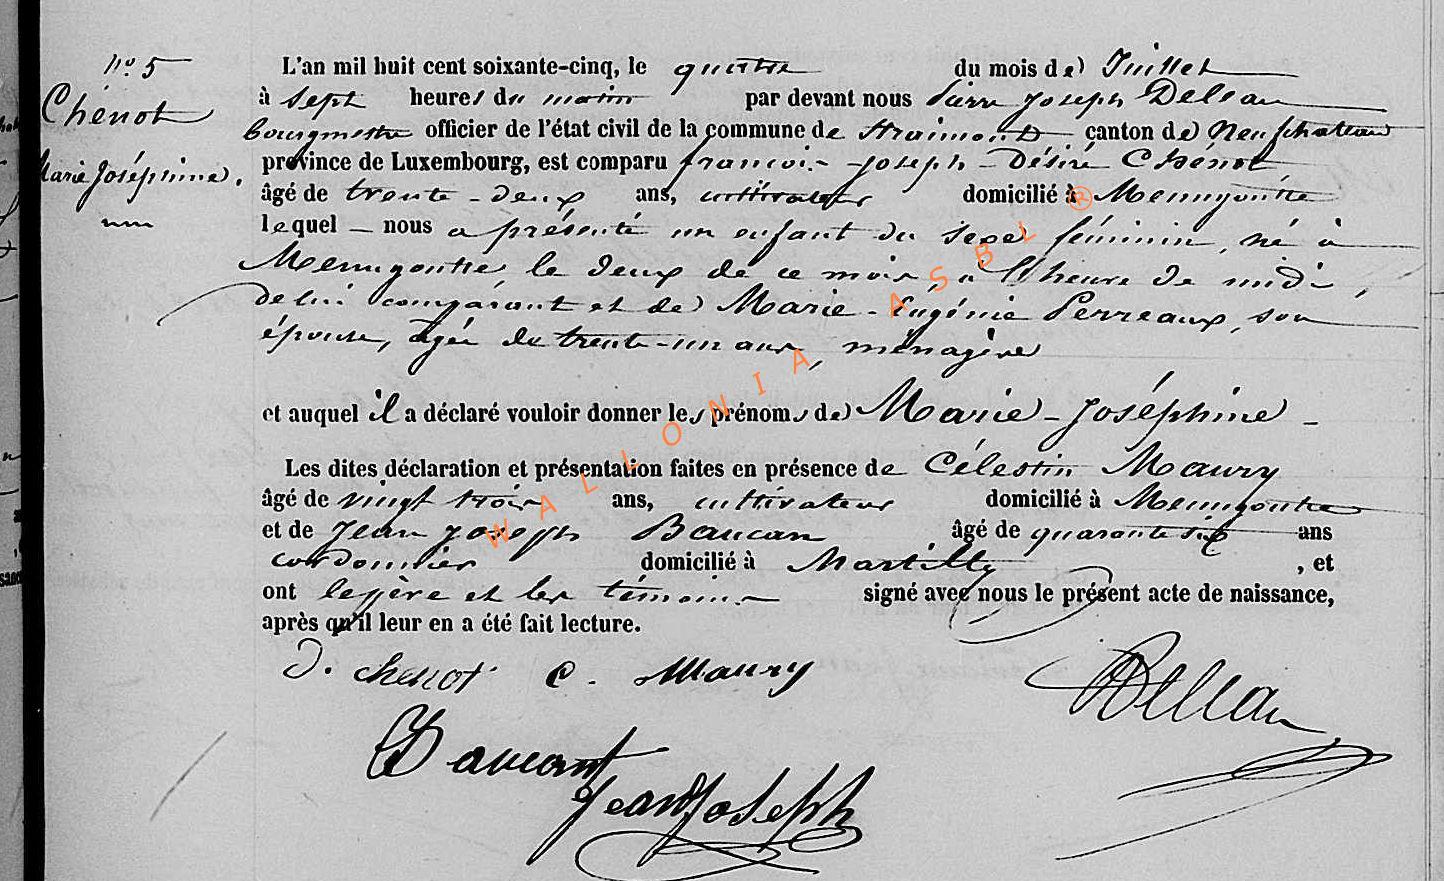 No 5
Chénot
Marie Joséphine.
L'an mil huit cent soixante-cinq, le quatre du mois de Juillet
à sept heures du matin par devant nous Pierre Joseph Deleau
bourgmestre officier de l'état civil de la commune de Straimont canton de Neufchateau
province de Luxembourg, est comparu françois-Joseph-Désiré Chénot
âgé de trente-deux ans, cultivateur domicilié à Menugoutte
lequel nous a présenté un enfant du sexe féminin, né à
Menugoutte le deux de ce mois, à l'heure de midi,
de lui comparant et de Marie-Eugénie Perreaux, son
épouse, âgée de trente-un ans, ménagère
et auquel il a déclaré vouloir donner les prénoms de Marie-Joséphine
Les dites déclaration et présentation faites en présence de Célestin Maury
âgé de vingt trois ans, cultivateur domicilié à Menugoutte
et de Jean Joseph Baucan âgé de quarante six ans
cordonnier domicilié à Martilly, et
ont le père et les témoins signé avec nous le présent acte de naissance,
après qu'il leur en a été fait lecture.
D. chenot C. Maury
Delleau
Baucant
Jean Joseph
WALLONIA ASBL ®